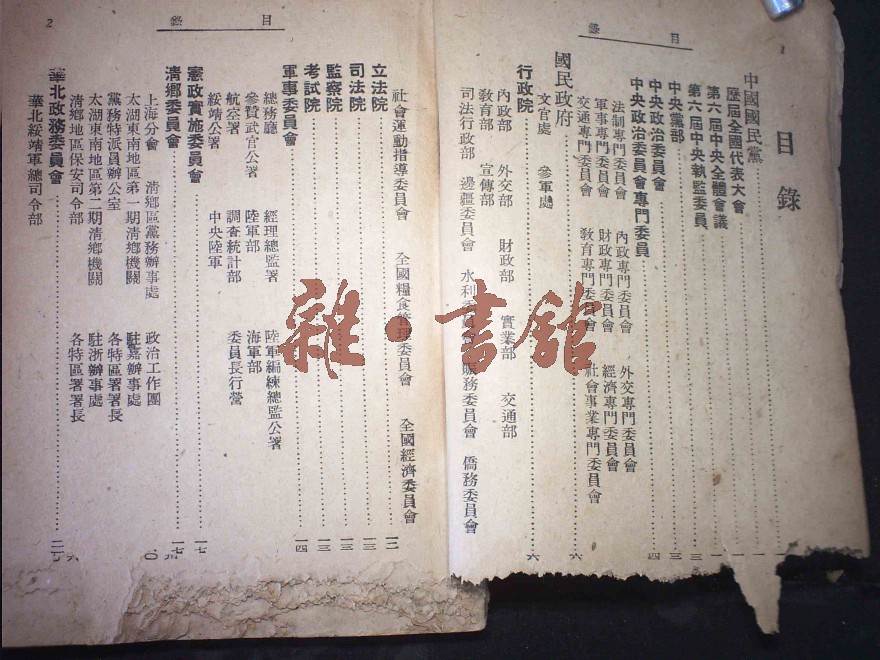 目錄
1
目錄
中國國民黨……一
歷屆全國代表大會……一
第六屆中央全體會議……一
第六屆中央執監委員……三
中央黨部……三
中央政治委員會……四
中央政治委員會專門委員……四
法制專門委員會 內政專門委員會 外交專門委員會
軍事專門委員會 財政專門委員會 經濟專門委員會
交通專門委員會 教育專門委員會 社會事業專門委員會
國民政府……六
文官處 參軍處
行政院……六
內政部 外交部 財政部 實業部 交通部
教育部 宣傳部
司法行政部 邊疆委員會 水利委員會 賑務委員會 僑務委員會
目錄
2
社會運動指導委員會 全國糧食管理委員會 全國經濟委員會
立法院……一二
司法院……一三
監察院……一三
考試院……一三
軍事委員會……一四
總務廳 經理總監署 陸軍編練總監公署
參贊武官公署 陸軍部 海軍部
航空署 調查統計部 委員長行營
綏靖公署 中央陸軍
憲政實施委員會……一七
清鄉委員會……一七
上海分會 清鄉區黨務辦事處 政治工作團
太湖東南地區第一期清鄉機關 駐嘉辦事處
黨務特派員辦公室 各特區署署長
太湖東南地區第二期清鄉機關 駐浙辦事處
清鄉地區保安司令部 各特區署署長
華北政務委員會……二
華北綏靖軍總司令部
雜·書館